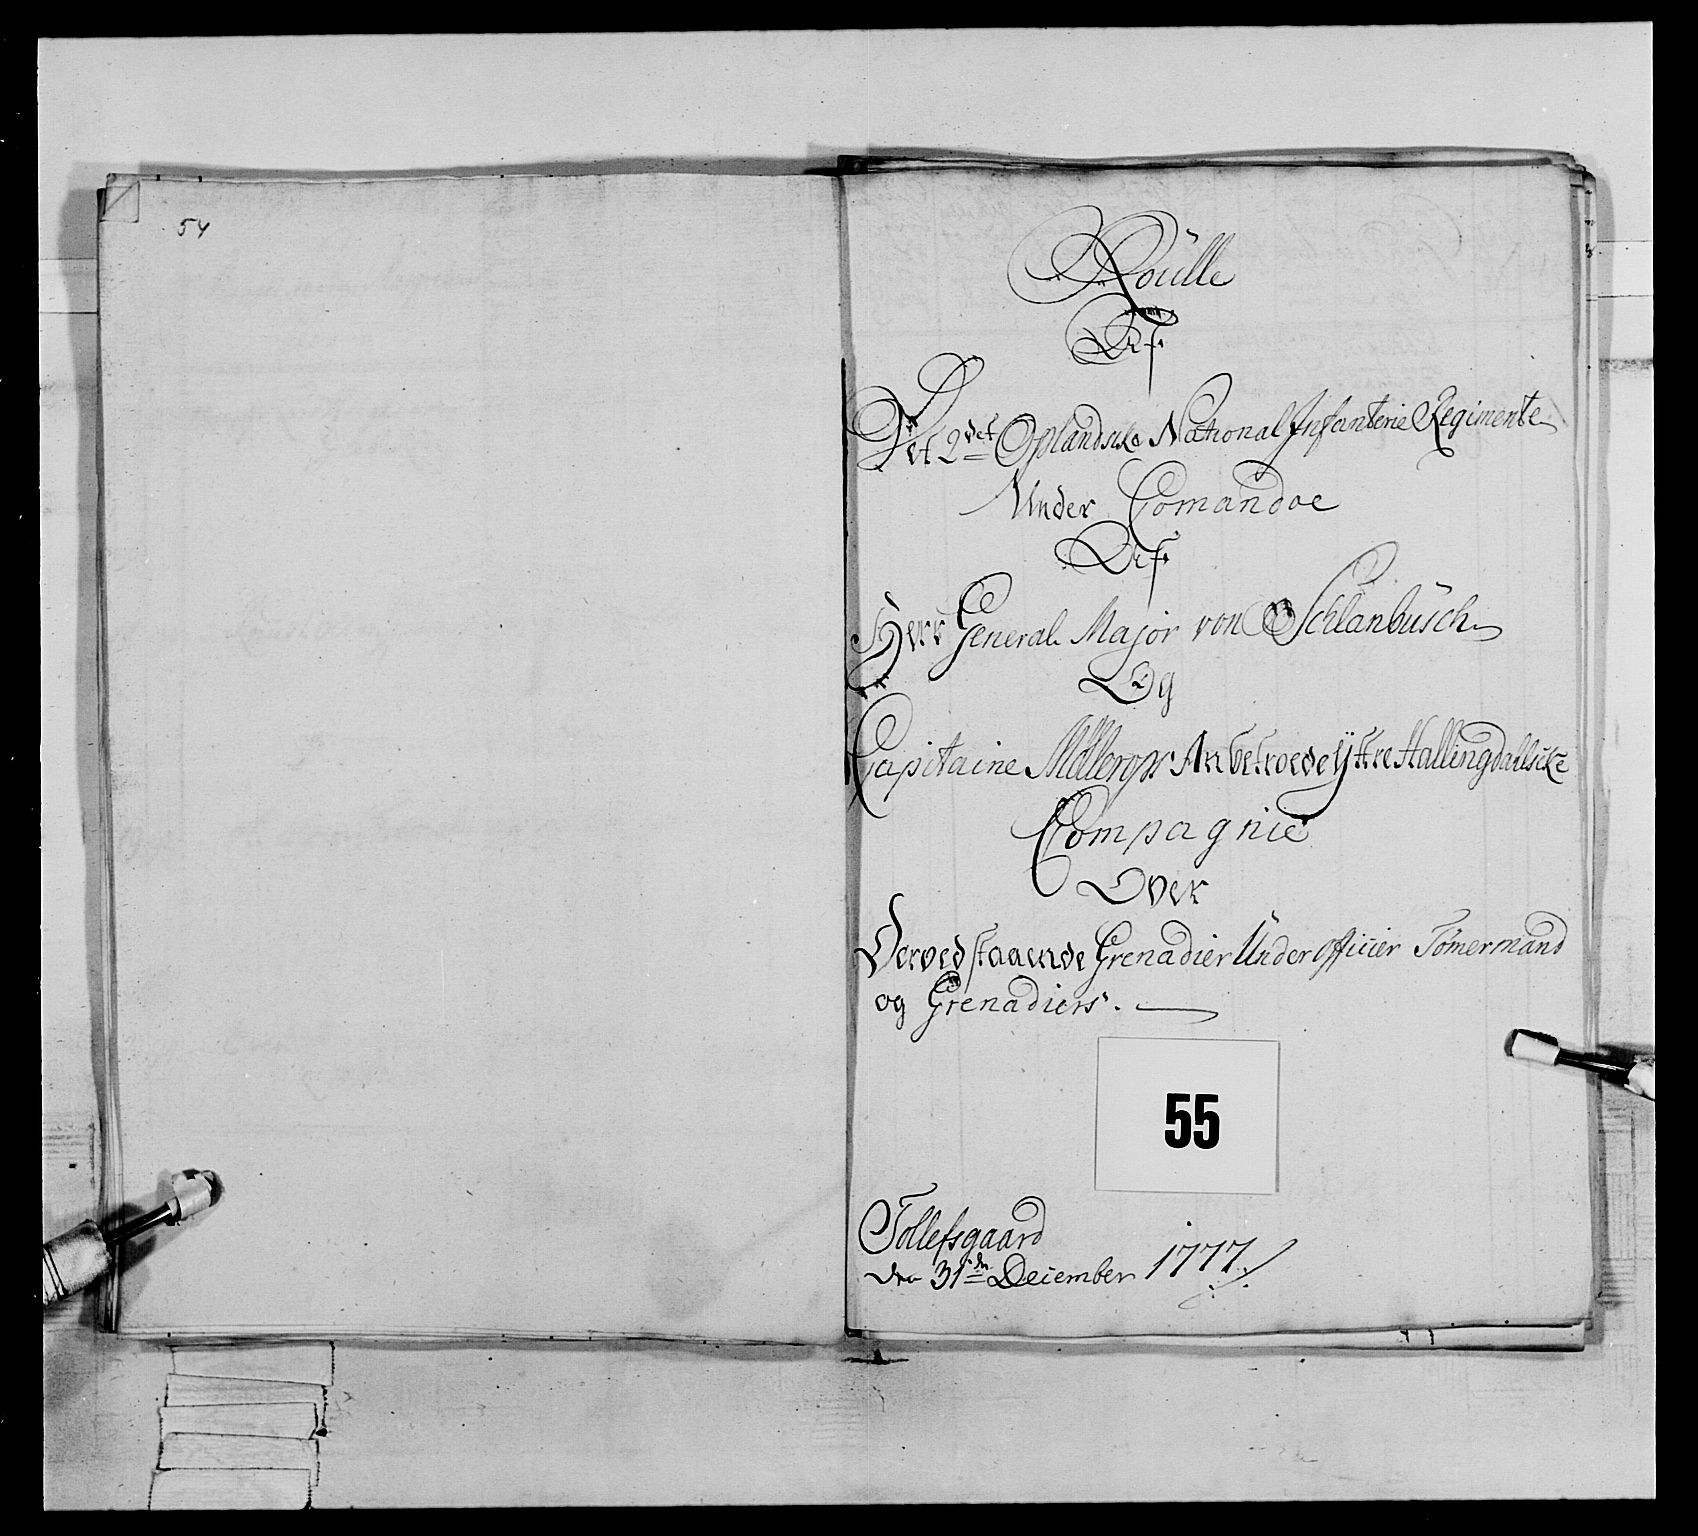 54
Roülle
Af
Det 2det Oplandske National Infanterie Regimente
Under Comandoe
Af
Herr General Major von Schlanbüsch
Og
Capitaine Møllerops Anbetroede ÿttre Hallingdahlske
Compagnie
Over
Derved staaende Grenadier Under Officier Tømermand
og Grenadiers.
55
Tollefsgaard
den 31de December 1777